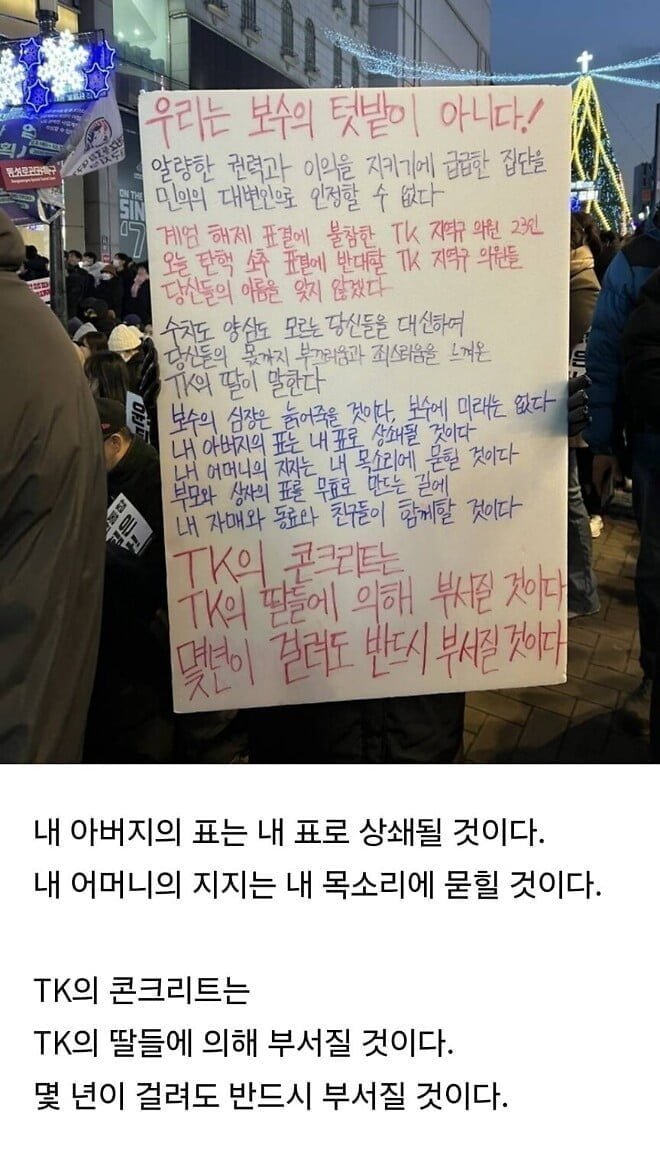 우리는 보수의 텃밭이 아니다!
알량한 권력과 이익을 지키기에 급급한 집단을
민의의 대변인으로 인정할 수 없다
계엄 해제 표결에 불참한 TK 지역구 의원 23인
오늘 탄핵 소추 표결에 반대할 TK 지역구 의원들
당신들의 이름을 잊지 않겠다
수치도 양심도 모르는 당신들을 대신하여
당신들의 몫까지 부끄러움과 죄스러움을 느껴온
TK의 딸이 말한다
보수의 심장은 늙어죽을 것이다, 보수에 미래는 없다
내 아버지의 표는 내 표로 상쇄될 것이다
내 어머니의 지지는 내 목소리에 묻힐 것이다
부모와 상사의 표를 무효로 만드는 길에
내 자매와 동료와 친구들이 함께할 것이다
TK의 콘크리트는
TK의 딸들에 의해 부서질 것이다
몇년이 걸려도 반드시 부서질 것이다
동성로관광특구
ON THE
SIN
'7
내 아버지의 표는 내 표로 상쇄될 것이다.
내 어머니의 지지는 내 목소리에 묻힐 것이다.
TK의 콘크리트는
TK의 딸들에 의해 부서질 것이다.
몇 년이 걸려도 반드시 부서질 것이다.